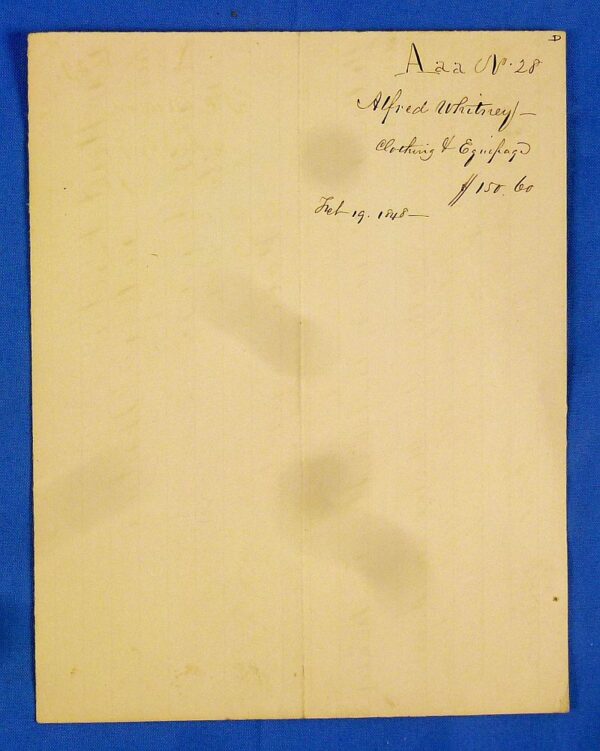 D
Aaa No. 28
Alfred Whitney —
Clothing & Equipage
$ 150.60
Feb 19. 1848 —